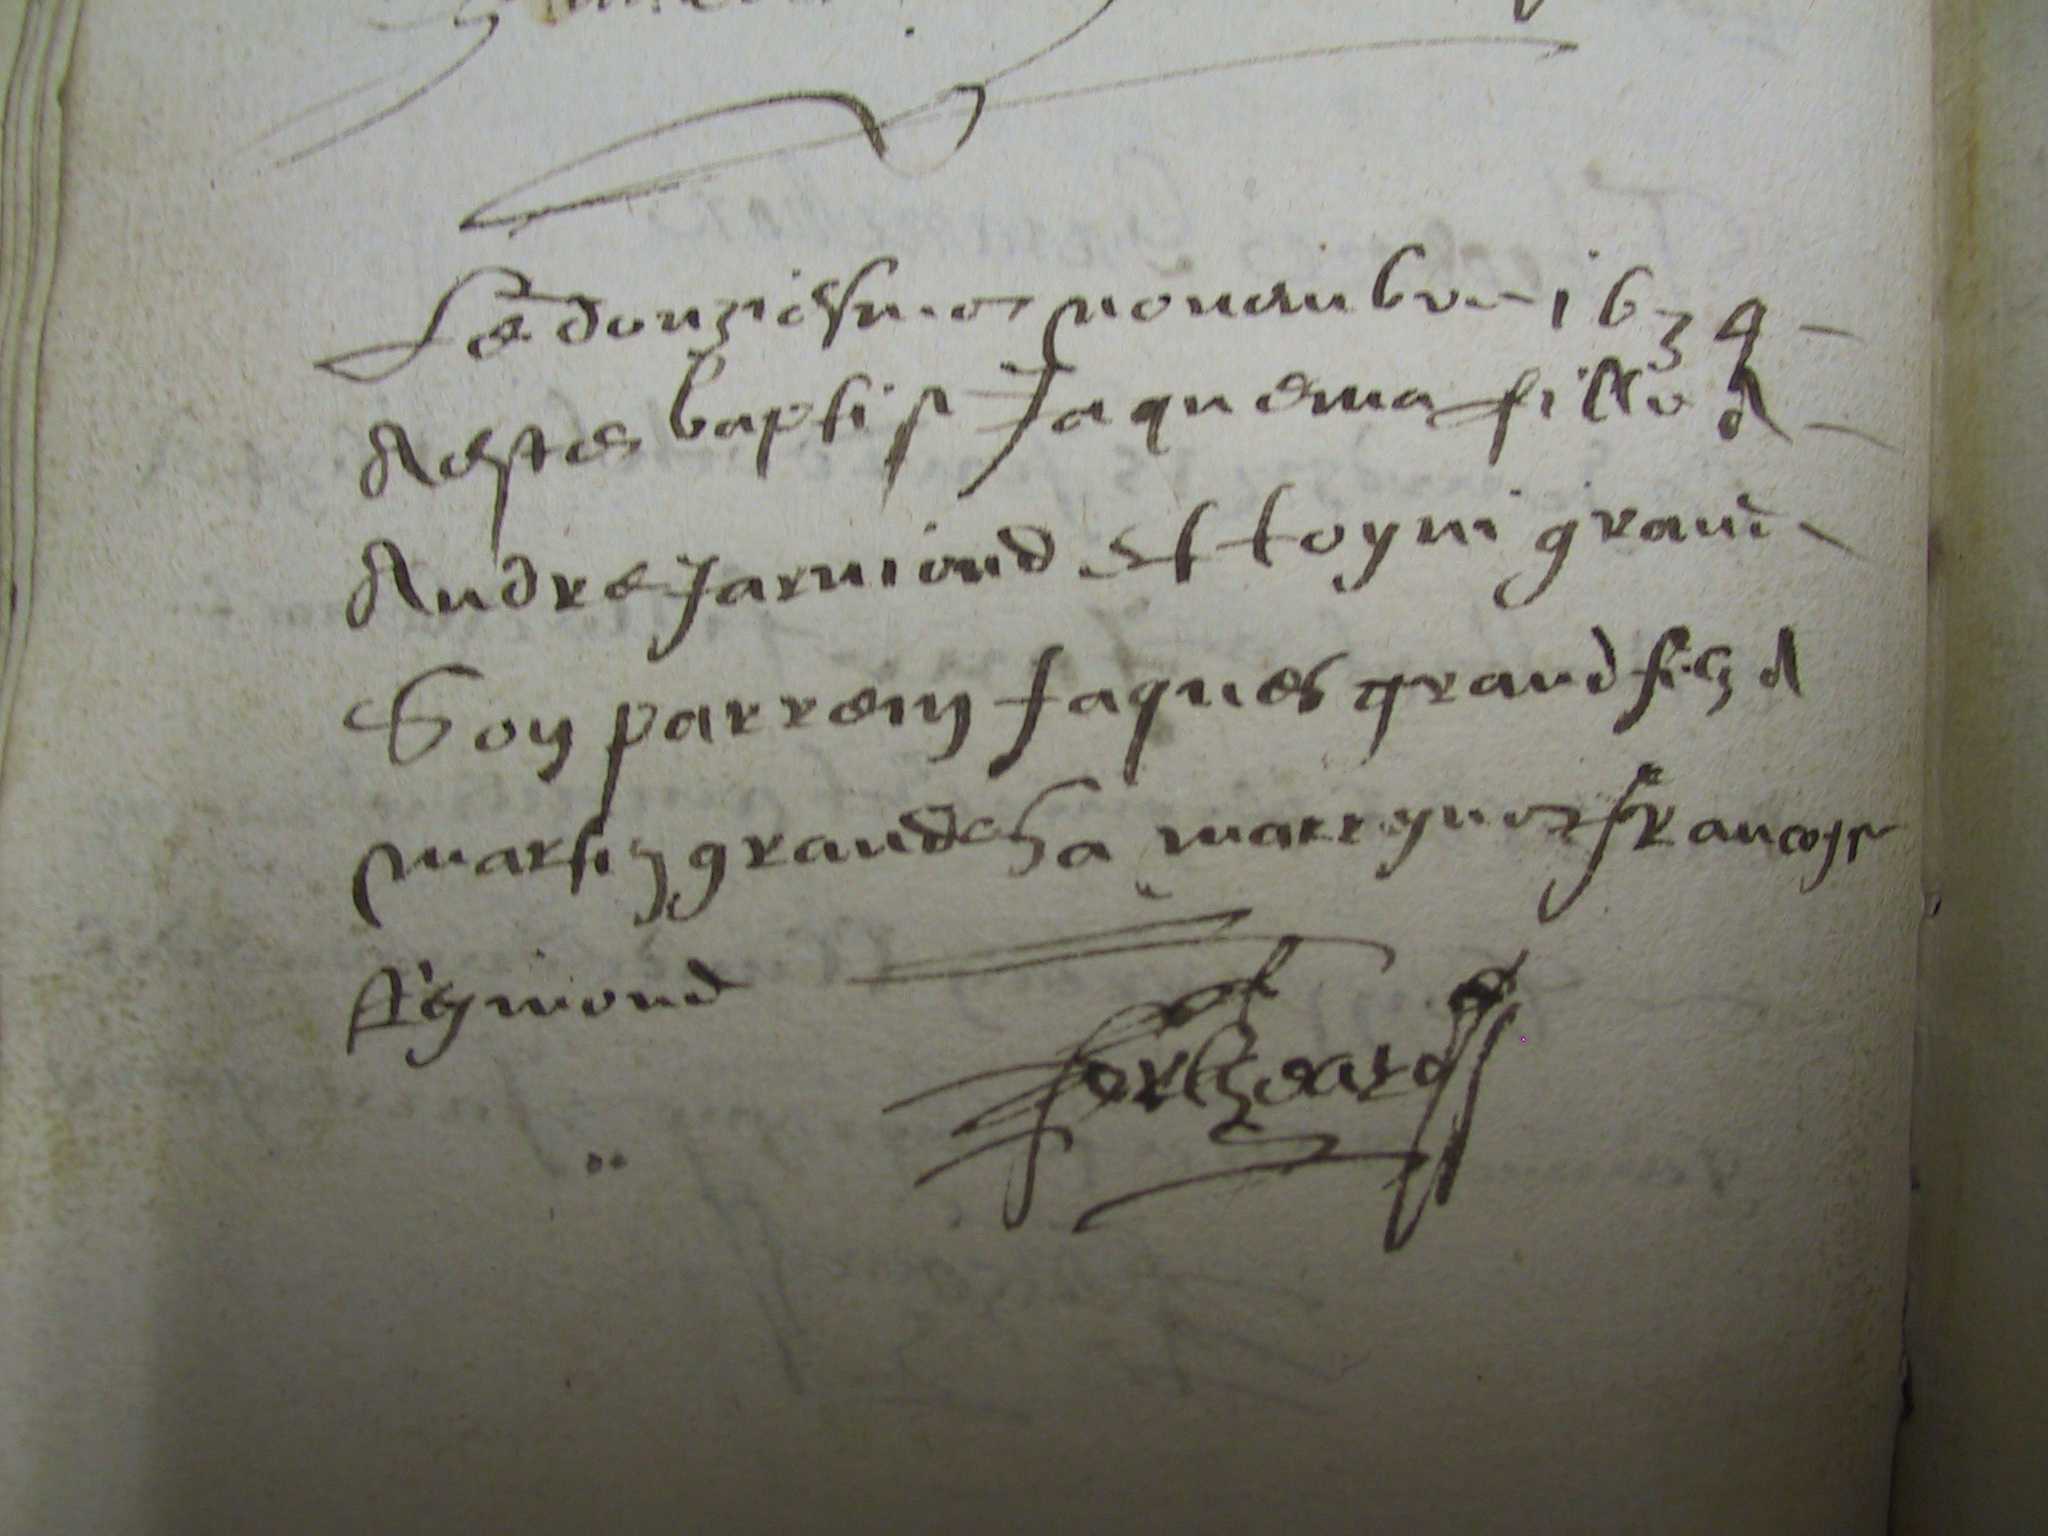 Le douziesme novembre 1634
A este baptise Jaquema fille d
Andre Jarniond et toyni grand
Son parreny Jaques grand filz d
martin grand et sa marreyne francoyse
Reymond